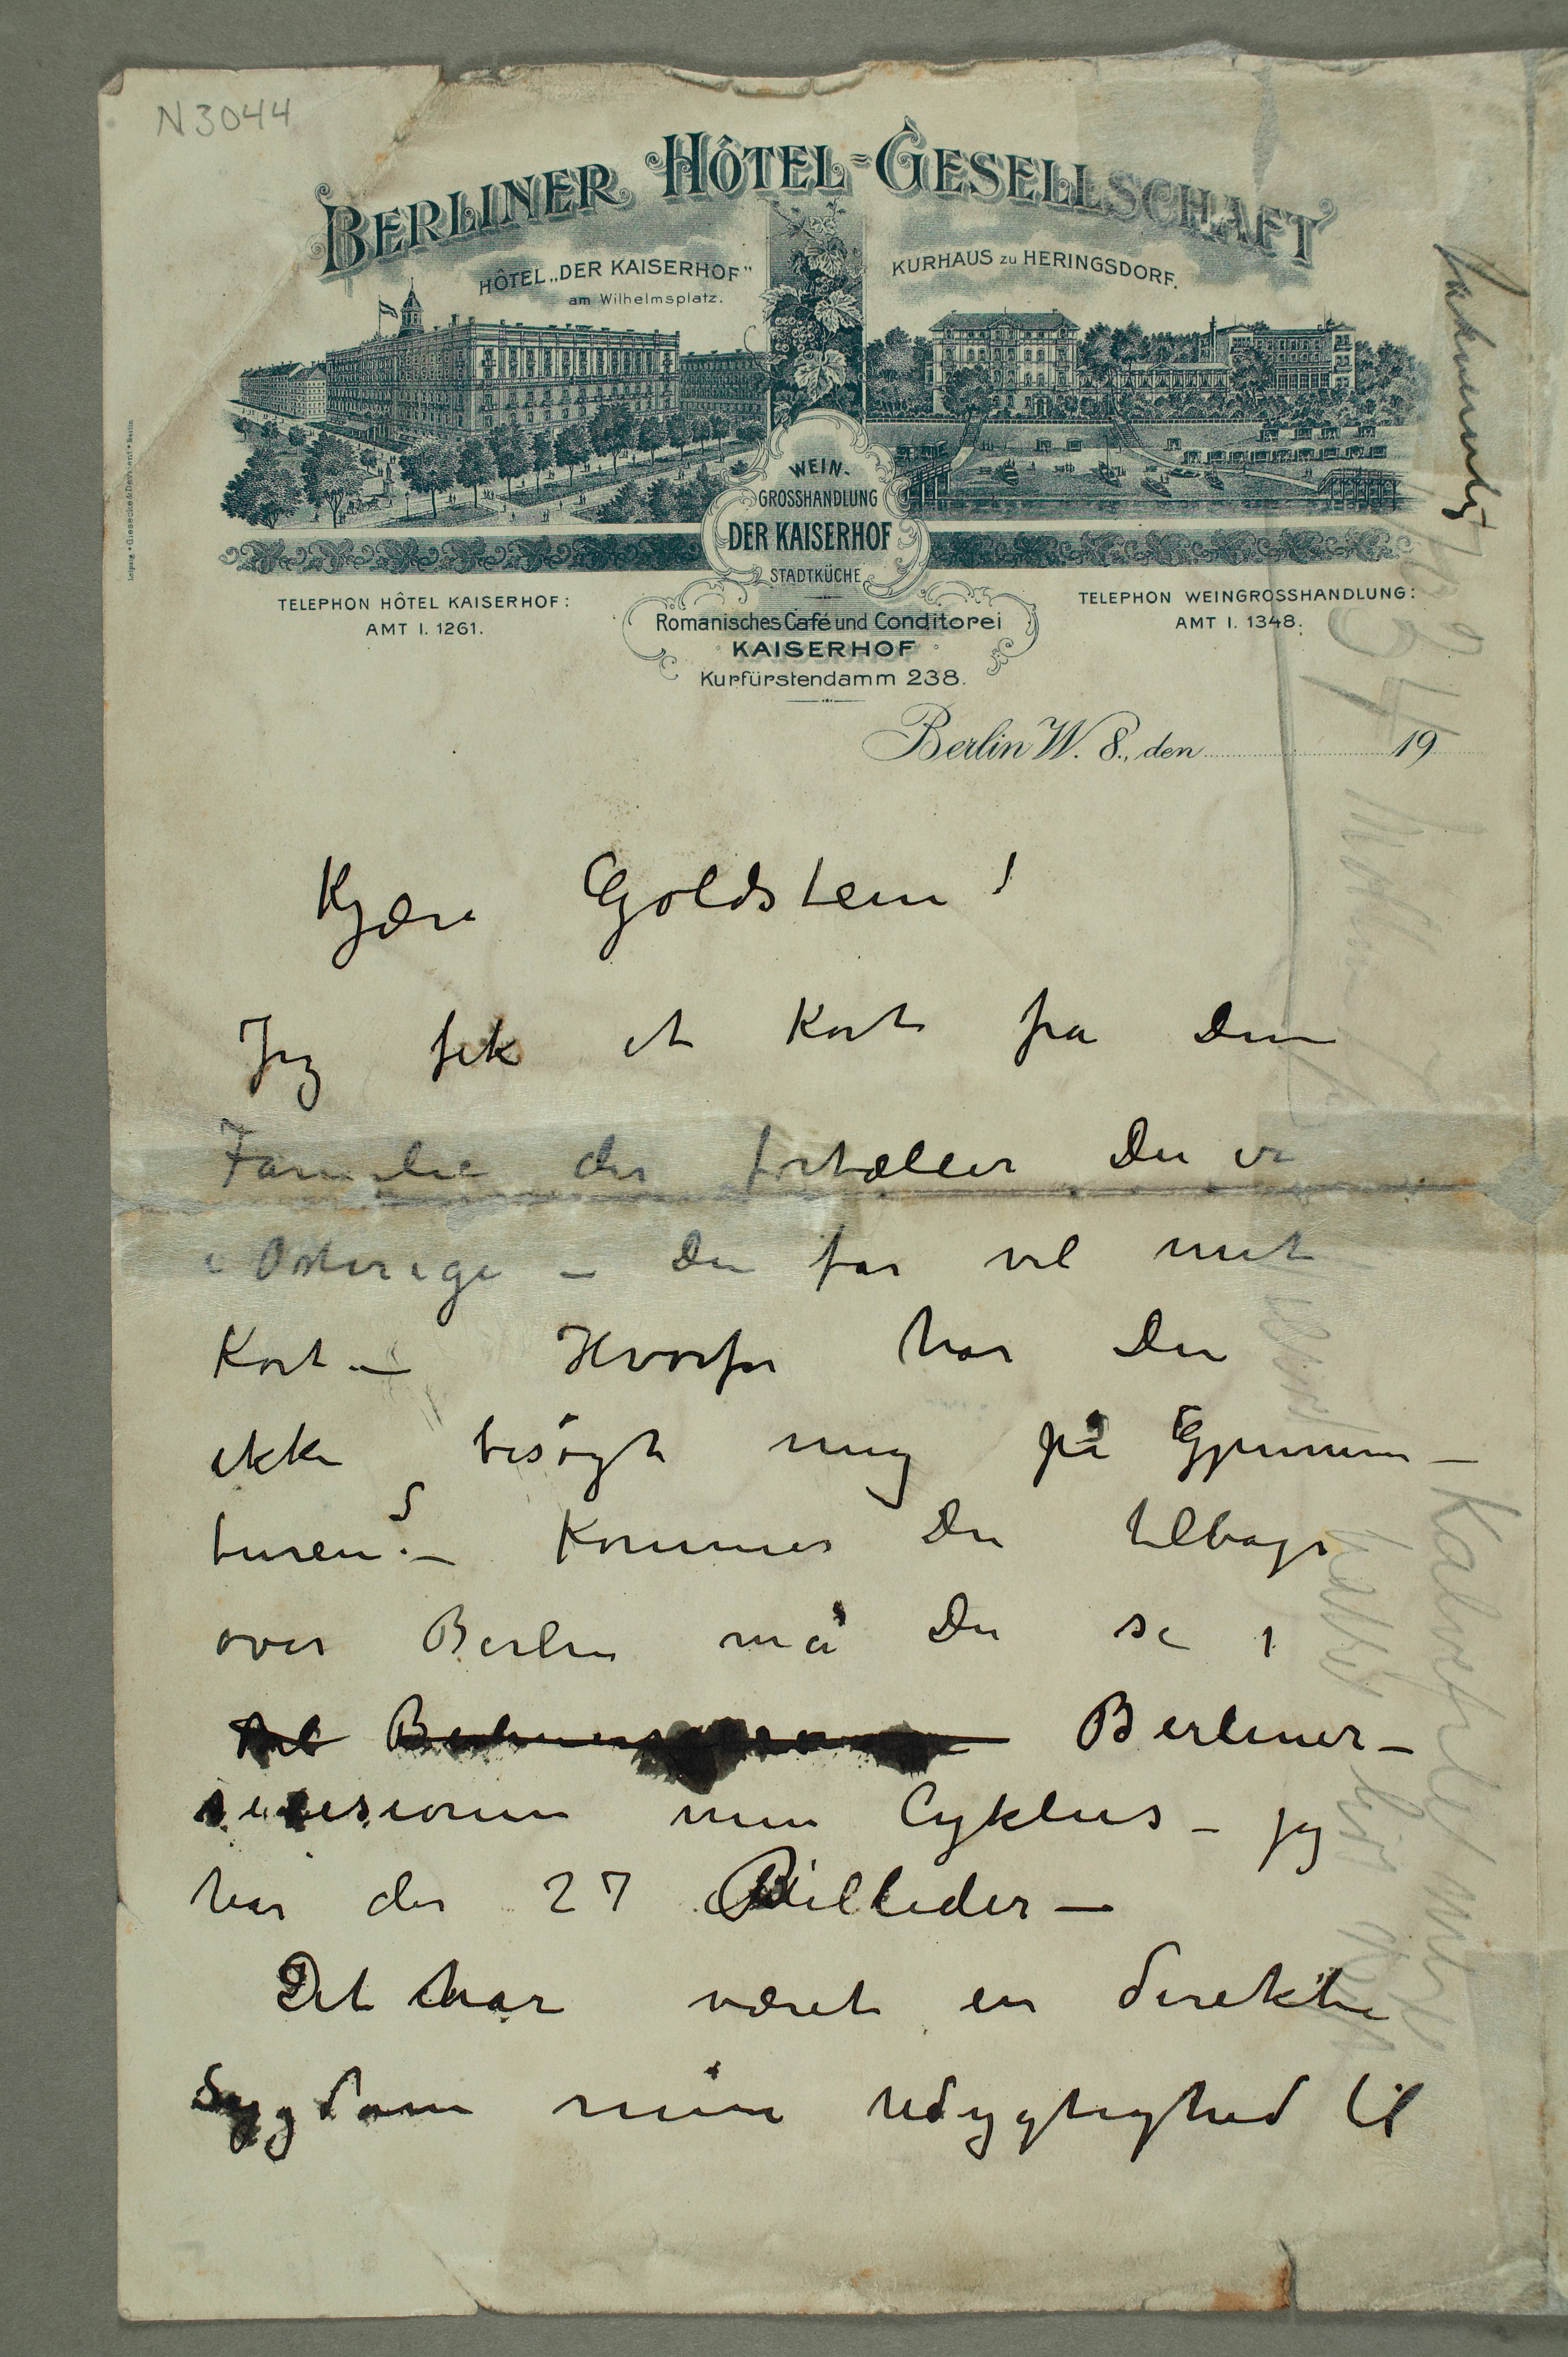 N3044
BERLINER HÔTEL-GESELLSCHAFT
HÔTEL „DER KAISERHOF"
am Wilhelmsplatz.
KURHAUS zu HERINGSDORF.
WEIN-
GROSSHANDLUNG
DER KAISERHOF
STADTKÜCHE
TELEPHON HÔTEL KAISERHOF:
AMT I. 1261.
TELEPHON WEINGROSSHANDLUNG:
AMT I. 1348.
Romanisches Café und Conditorei
KAISERHOF
Kurfürstendamm 238.
Leipzig • Giesecke & Devrient • Berlin
Berlin W. 8., den 19
Kjære Goldstein!
Jeg fik et Kort fra Din
Familie der fortæller Du er
i Østerige – Du får vel mit
Kort – Hvorfor har Du
ikke besøgt mig på Gjennem–
turen? – Kommer Du tilbage
over Berlin må Du se i
Berliner–
secesionen min Cyklus – jeg
har der 27 Billeder –
Det har været en direkte
Sygdom min Udygtighed til